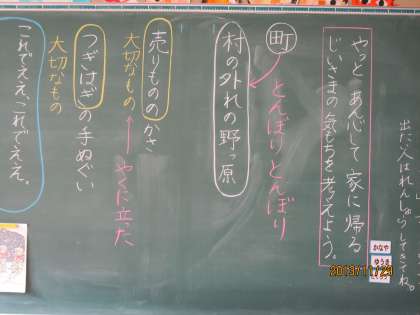 出た人はれんしゅうしてきてね。
やっと あん心して 家に帰る
じいさまの気もちを考えよう。
町
とんぼり とんぼり
村の外れの野っ原
売りもののかさ
大切なもの
やくに立った
つぎはぎの手ぬぐい
大切なもの
これでええ、これでええ。
かなや
ゆうき
2013/11/29